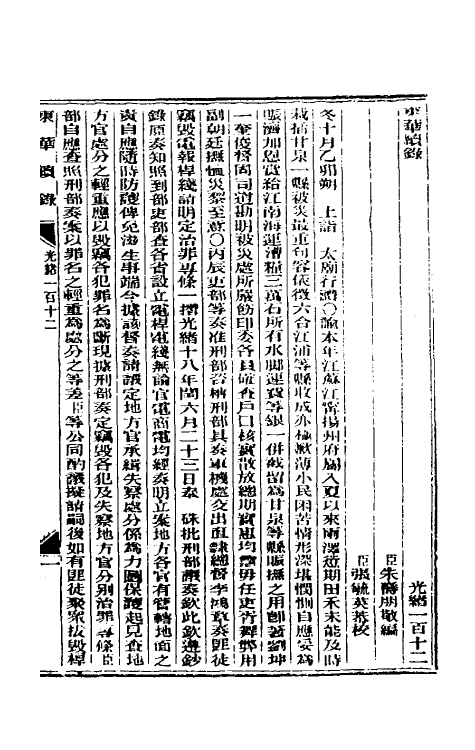 東華續錄
光緒一百十二
臣朱壽朋敬編
臣張毓英恭校
冬十月乙卯朔　上詣　太廟行禮○諭本年江蘇江寧揚州府屬入夏以來雨澤愆期田禾未能及時
栽插甘泉一縣被災最重句容儀徵六合江浦等縣收成亦極歉薄小民困苦情形深堪憫惻自應妥爲
賑濟加恩賞給江南海運漕糧三萬石所有水腳運費等銀一併截留爲甘泉等縣賑撫之用卽著劉坤
一奎俊督同司道勘明被災處所嚴飭印委各員確查戶口核實散放總期實惠均霑毋任吏胥舞弊用
副朝廷撫恤災黎至意○丙辰吏部等奏准刑部咨稱刑部具奏軍機處交出直隸總督李鴻章奏匪徒
竊毀電報桿綫請明定治罪專條一摺光緒十八年閏六月二十三日奉　硃批刑部議奏欽此欽遵鈔
錄原奏知照到部吏部查各省設立電桿電綫無論官電商電均經奏明立案地方各官有管轄地面之
責自應隨時防護俾免滋生事端今據該督奏請議定地方官承緝失察處分係爲力圖保護起見查地
方官處分之輕重應以毀竊各犯罪名爲斷現據刑部奏定竊毀各犯及失察地方官分別治罪專條臣
部自應查照刑部奏案以罪名之輕重爲處分之等差臣等公同酌議擬請嗣後如有匪徒聚衆拔毀桿
東華續錄
光緒一百十二
一